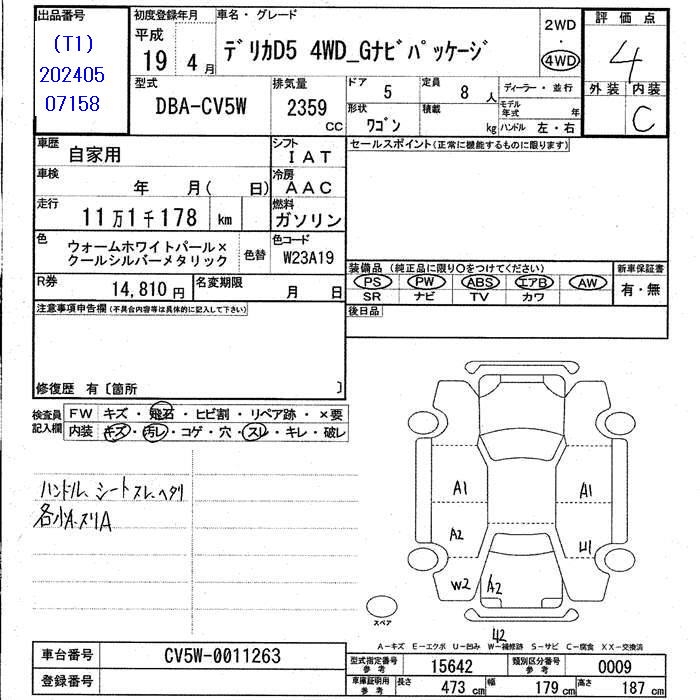 出品番号
(T1)
202405
07158
初度登録年月
平成
19 4 月
車名・グレード
デリカD5 4WD_Gナビパッケージ
2WD
・
4WD
評価点
4
外装 内装
C
型式
DBA-CV5W
排気量
2359
CC
ドア
5
定員
8 人
形状
ワゴン
積載
kg
ディーラー・並行
モデル年式 年
ハンドル 左・右
車歴
自家用
シフト
IAT
車検
年 月( 日)
冷房
AAC
走行
11万1千178 km
燃料
ガソリン
色
ウォームホワイトパール×
クールシルバーメタリック
色替
色コード
W23A19
R券
14,810 円
名変期限
月 日
セールスポイント(正常に機能するものに限ります)
装備品 (純正品に限り○をつけてください)
PS PW ABS エアB AW
SR ナビ TV カワ
新車保証書
有・無
後日品
注意事項申告欄(不具合内容等は具体的に記入して下さい)
修復歴 有〔箇所 〕
検査員
記入欄
FW キズ・飛石・ヒビ割・リペア跡・×要
内装 キズ・汚レ・コゲ・穴・スレ・キレ・破レ
ハンドル、シートスレ、ヘタリ
各小A、スリA
A1
A2
W2
A2
A1
U1
42
スペア
A-キズ E-エクボ U-凹み W-補修跡 S-サビ C-腐食 XX-交換済
車台番号
CV5W-0011263
登録番号
型式指定番号
参考
15642
類別区分番号
参考
0009
車庫証明用
参考
長さ 473 cm 幅 179 cm 高さ 187 cm